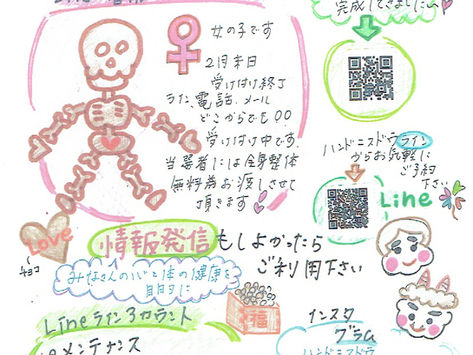 完成してきました
女の子です
2月末日
受け付け終了
ライン、電話、メール
どこからでも〇〇
受け付け中です
当選者には全身整体
無料券お渡しさせて
頂きます
ハンドニストウライン
からお気軽に
ご予約
下さい
Line
Love
チョコ
情報発信
もしよかったら
ご利用下さい
みなさんの心と体の健康を
目的に
福
Lineライン3カウント
メンテナンス
インスタ
グラム
ハンドニストウ